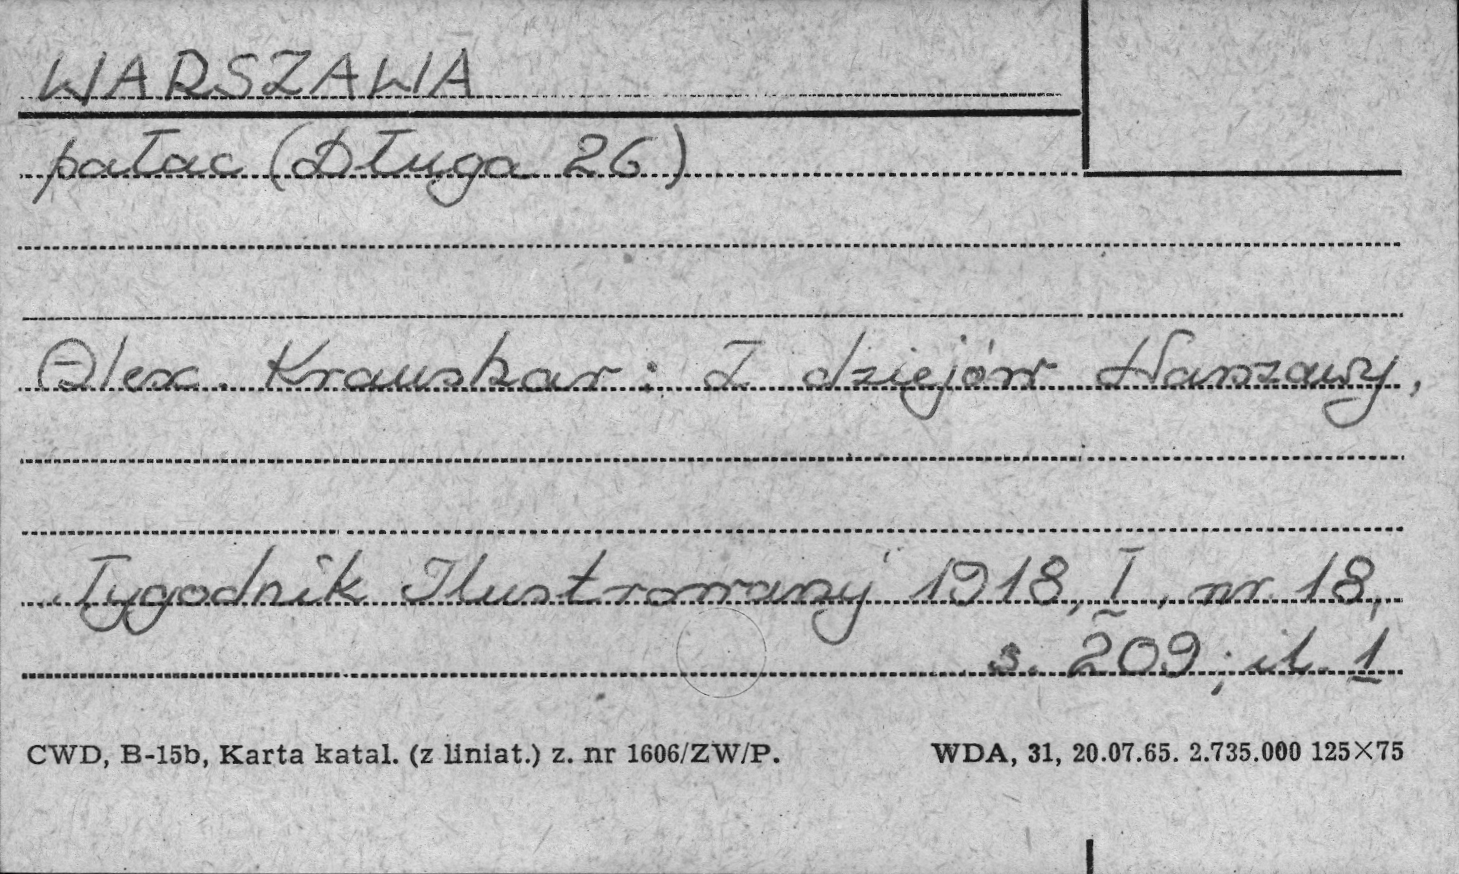 WARSZAWA
pałac (Długa 26)
Alex. Kraushar: Z dziejów Warszawy,
Tygodnik Ilustrowany 1918, I, nr 18,
s. 209; il. 1
CWD, B-15b, Karta katal. (z liniat.) z. nr 1606/ZW/P. WDA, 31, 20.07.65. 2.735.000 125×75